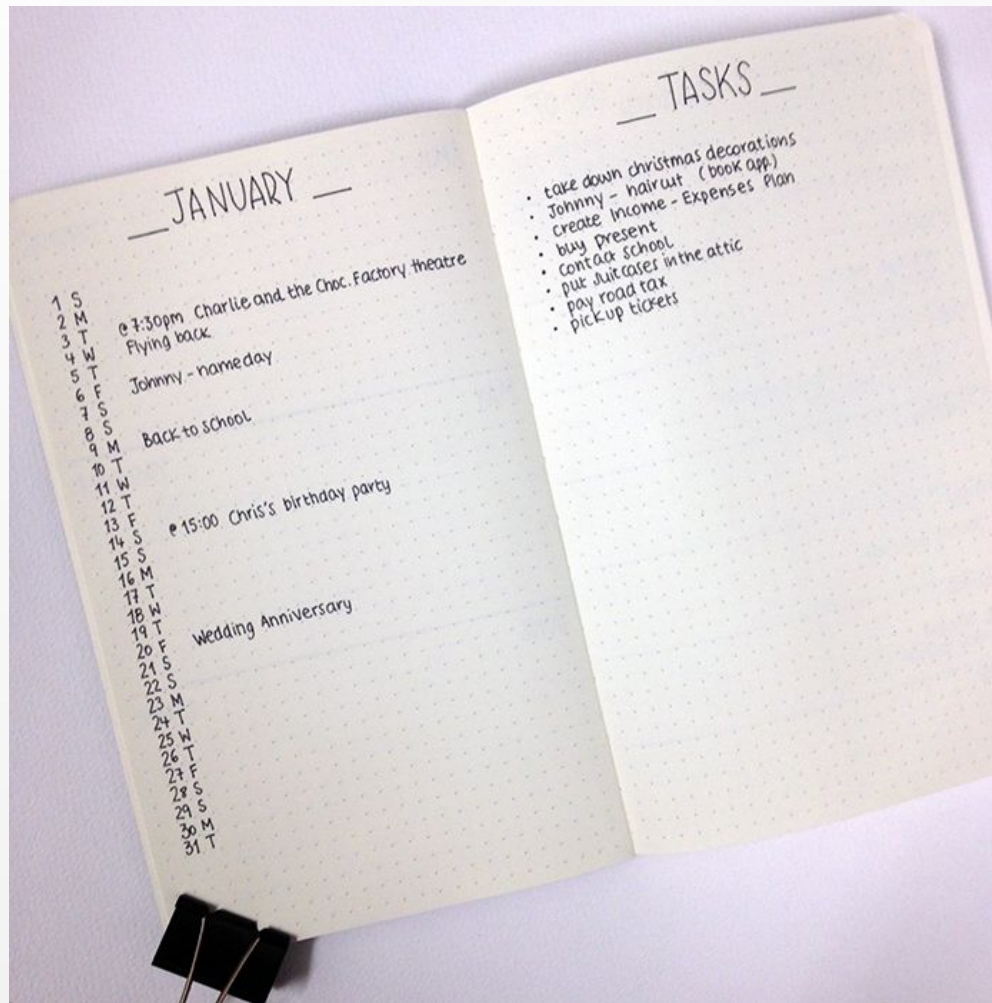 __JANUARY__
1 S
2 M
3 T @ 7:30pm Charlie and the Choc. Factory theatre
4 W Flying back
5 T
6 F Johnny - nameday
7 S
8 S
9 M Back to school
10 T
11 W
12 T
13 F
14 S @ 15:00 Chris's birthday party
15 S
16 M
17 T
18 W
19 T
20 F Wedding Anniversary
21 S
22 S
23 M
24 T
25 W
26 T
27 F
28 S
29 S
30 M
31 T
__TASKS__
• take down christmas decorations
• Johnny - haircut (book app.)
• create Income - Expenses Plan
• buy present
• contact school
• put suitcases in the attic
• pay road tax
• pick up tickets